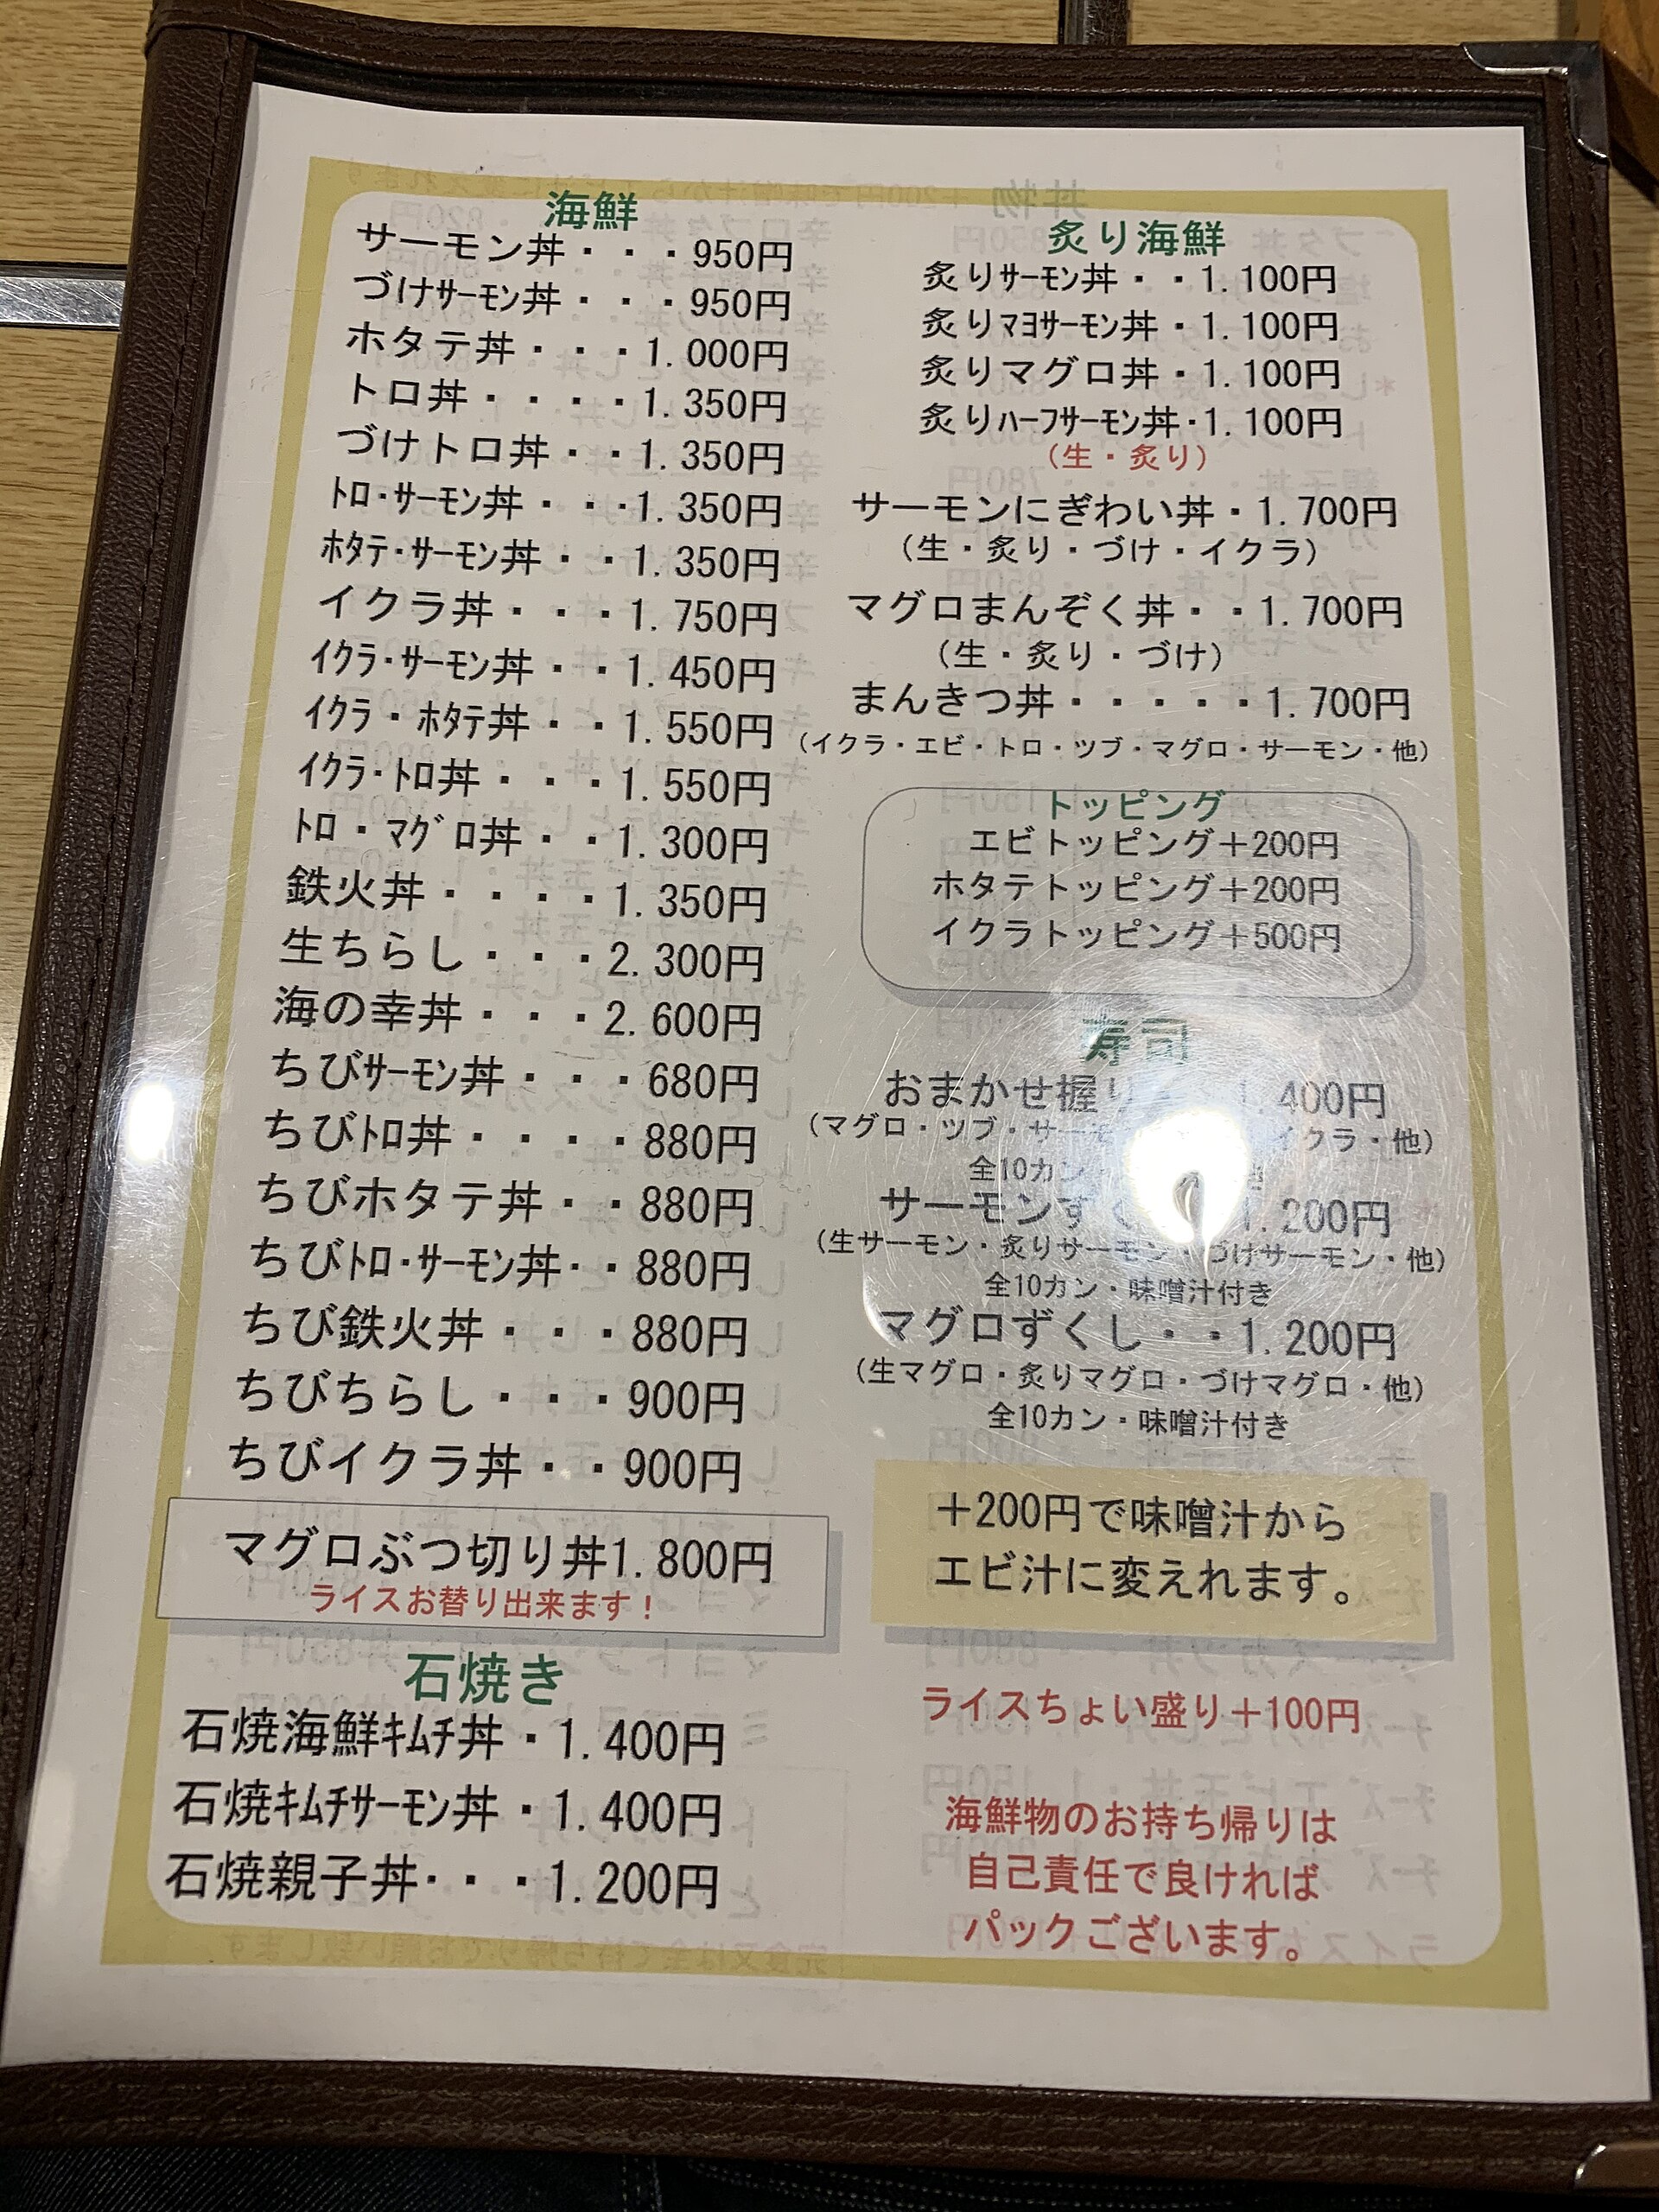 海鮮
サーモン丼・・・950円
づけサーモン丼・・・950円
ホタテ丼・・・1.000円
トロ丼・・・・1.350円
づけトロ丼・・1.350円
トロ・サーモン丼・・・1.350円
ホタテ・サーモン丼・・1.350円
イクラ丼・・・1.750円
イクラ・サーモン丼・・1.450円
イクラ・ホタテ丼・・1.550円
イクラ・トロ丼・・・1.550円
トロ・マグロ丼・・1.300円
鉄火丼・・・・1.350円
生ちらし・・・2.300円
海の幸丼・・・2.600円
ちびサーモン丼・・・680円
ちびトロ丼・・・・880円
ちびホタテ丼・・880円
ちびトロ・サーモン丼・・880円
ちび鉄火丼・・・880円
ちびちらし・・・900円
ちびイクラ丼・・900円
マグロぶつ切り丼1.800円
ライスお替り出来ます！
石焼き
石焼海鮮キムチ丼・1.400円
石焼キムチサーモン丼・1.400円
石焼親子丼・・・1.200円
炙り海鮮
炙りサーモン丼・・1.100円
炙りマヨサーモン丼・1.100円
炙りマグロ丼・1.100円
炙りハーフサーモン丼・1.100円
（生・炙り）
サーモンにぎわい丼・1.700円
（生・炙り・づけ・イクラ）
マグロまんぞく丼・・1.700円
（生・炙り・づけ）
まんきつ丼・・・・・1.700円
（イクラ・エビ・トロ・ツブ・マグロ・サーモン・他）
トッピング
エビトッピング＋200円
ホタテトッピング＋200円
イクラトッピング＋500円
寿司
おまかせ握り 1.400円
（マグロ・ツブ・サーモ イクラ・他）
全10カン・
サーモンずく 1.200円
（生サーモン・炙りサーモン・づけサーモン・他）
全10カン・味噌汁付き
マグロずくし・・1.200円
（生マグロ・炙りマグロ・づけマグロ・他）
全10カン・味噌汁付き
＋200円で味噌汁から
エビ汁に変えれます。
ライスちょい盛り＋100円
海鮮物のお持ち帰りは
自己責任で良ければ
パックございます。